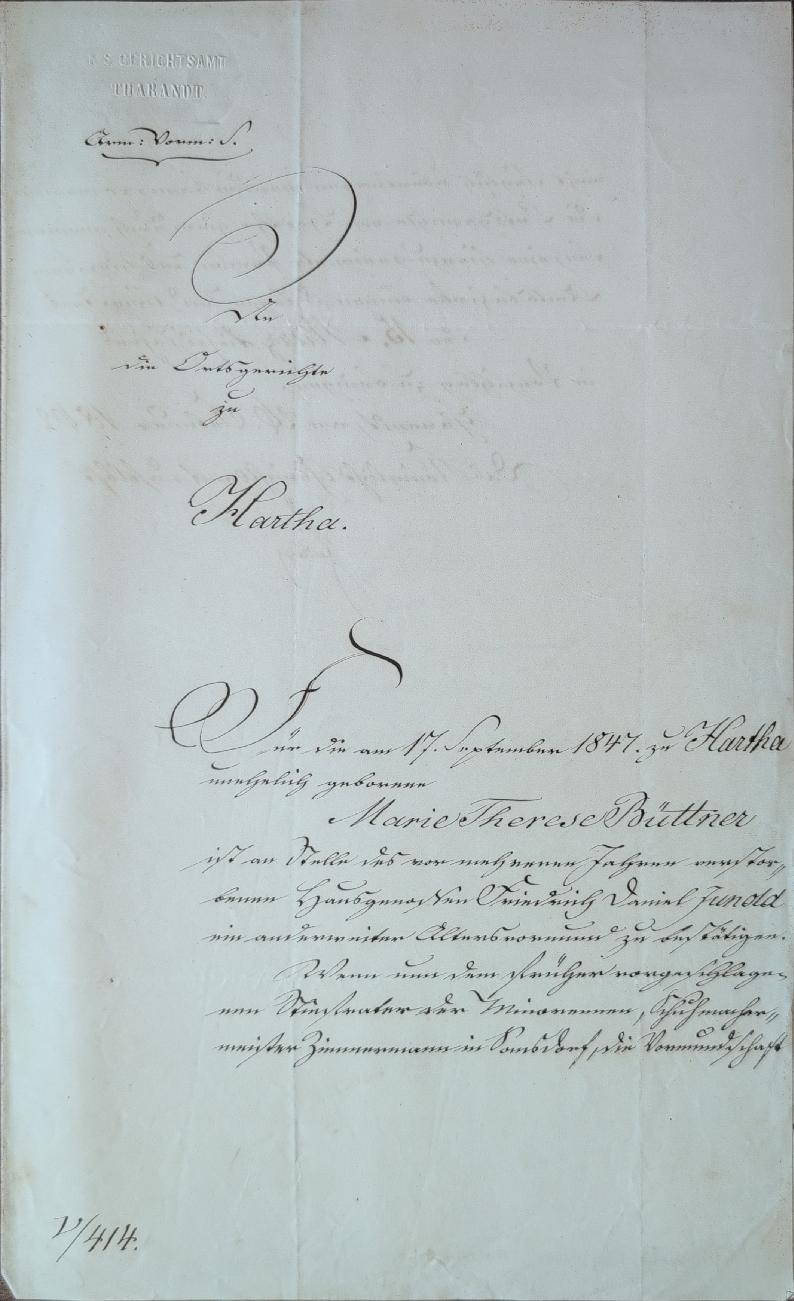 K. S. GERICHTSAMT
THARANDT.
Arm: Vorm: S.
An
die Ortsgerichte
zu
Hartha.
Für die am 17. September 1847. zu Hartha
unehelich geborene
Marie Therese Büttner
ist an Stelle des vor mehreren Jahren verstor„
benen Hausgenossen Friedrich Daniel Junold
ein anderweiter Altersvormund zu bestätigen.
Wenn nun dem früher vorgeschlage„
nen Stiefvater der Minorennen, Schuhmacher„
meister Zimmermann in Somsdorf, die Vormundschaft
V/414.